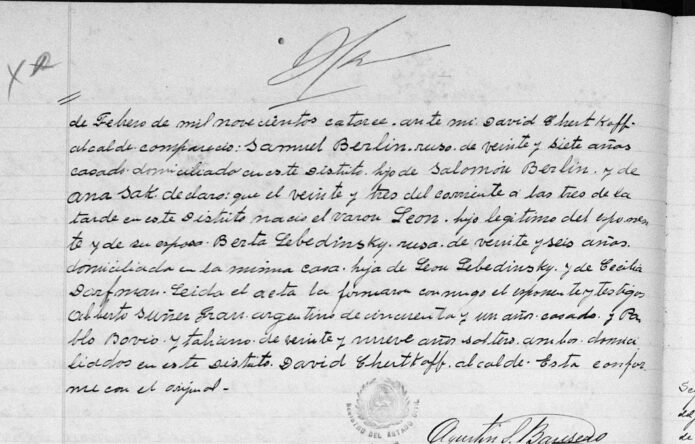 de Febrero de mil novecientos catorce. ante mi David Chertkoff.
alcalde comparecio: Samuel Berlin. ruso. de veinte y siete años
casado domiciliado en este Distrito. hijo de Salomón Berlin. y de
Ana Sak. declaro: que el veinte y tres del corriente á las tres de la
tarde en este Distrito nacio el varon Leon. hijo legitimo del exponen-
te y de su esposa. Berta Lebedinsky. rusa. de veinte y seis años.
domiciliada en la misma casa. hija de Leon Lebedinsky. y de Cecilia
Dorfman. Leida el acta la firmaron conmigo el exponente y testigos
Alberto Suñer Gran. argentino de cincuenta y un años. casado. y Pa-
blo Bovio. ytaliano. de veinte y nueve años soltero. ambos. domici-
liados en este Distrito. David Chertkoff. alcalde. Esta confor-
me con el orijinal.
REGISTRO DEL ESTADO CIVIL
Agustin S.